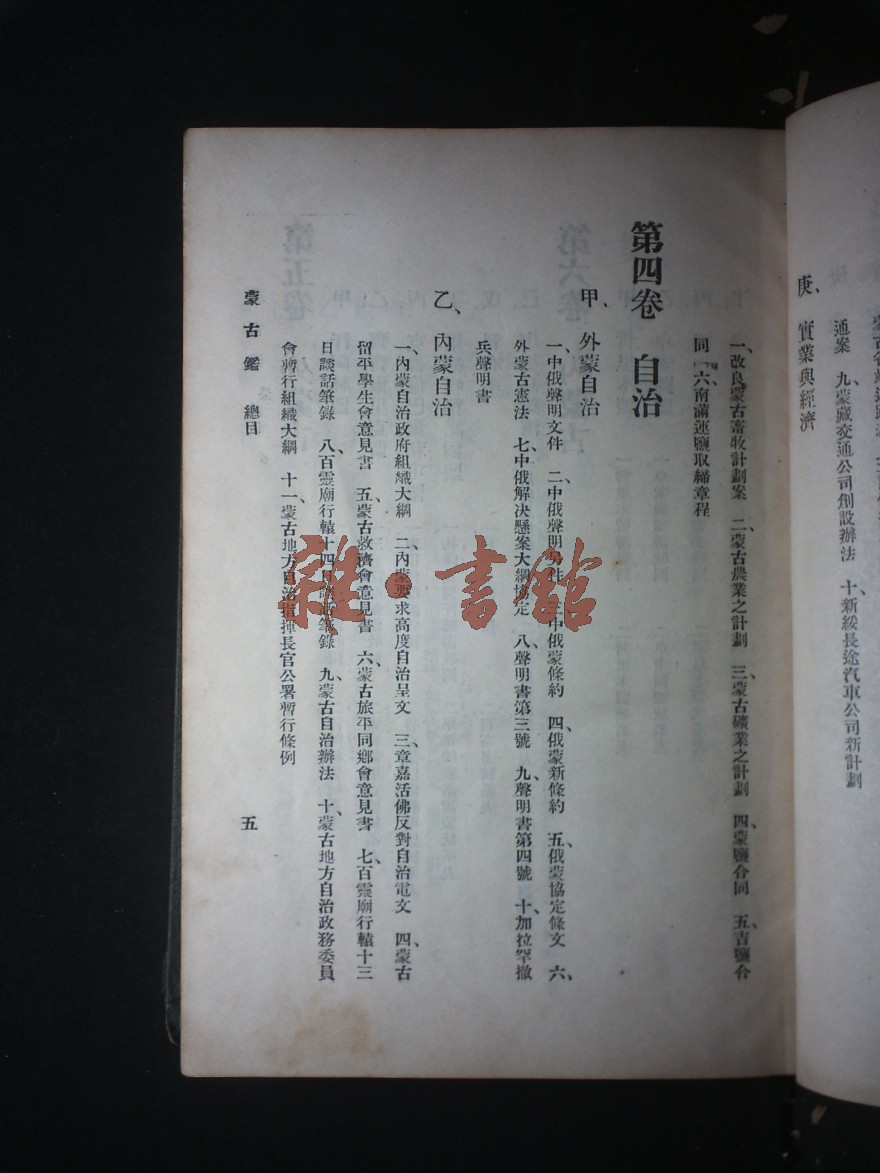 庚、實業與經濟
通案　九、蒙藏交通公司創設辦法　十、新綏長途汽車公司新計劃
一、改良蒙古畜牧計劃案　二、蒙古農業之計劃　三、蒙古礦業之計劃　四、蒙鹽合同　五、吉鹽合
同　六、南滿運鹽取締章程
第四卷　自治
甲、外蒙自治
一、中俄聲明文件　二、中俄聲明另件　三、中俄蒙條約　四、俄蒙新條約　五、俄蒙協定條文　六、
外蒙古憲法　七、中俄解決懸案大綱協定　八、聲明書第三號　九、聲明書第四號　十、加拉罕撤
兵聲明書
乙、內蒙自治
一、內蒙自治政府組織大綱　二、內蒙要求高度自治呈文　三、章嘉活佛反對自治電文　四、蒙古
留平學生會意見書　五、蒙古救濟會意見書　六、蒙古旅平同鄉會意見書　七、百靈廟行轅十三
日談話筆錄　八、百靈廟行轅十四日談話筆錄　九、蒙古自治辦法　十、蒙古地方自治政務委員
會暫行組織大綱　十一、蒙古地方自治指揮長官公署暫行條例
蒙古鑑　總目　五
雜·書館